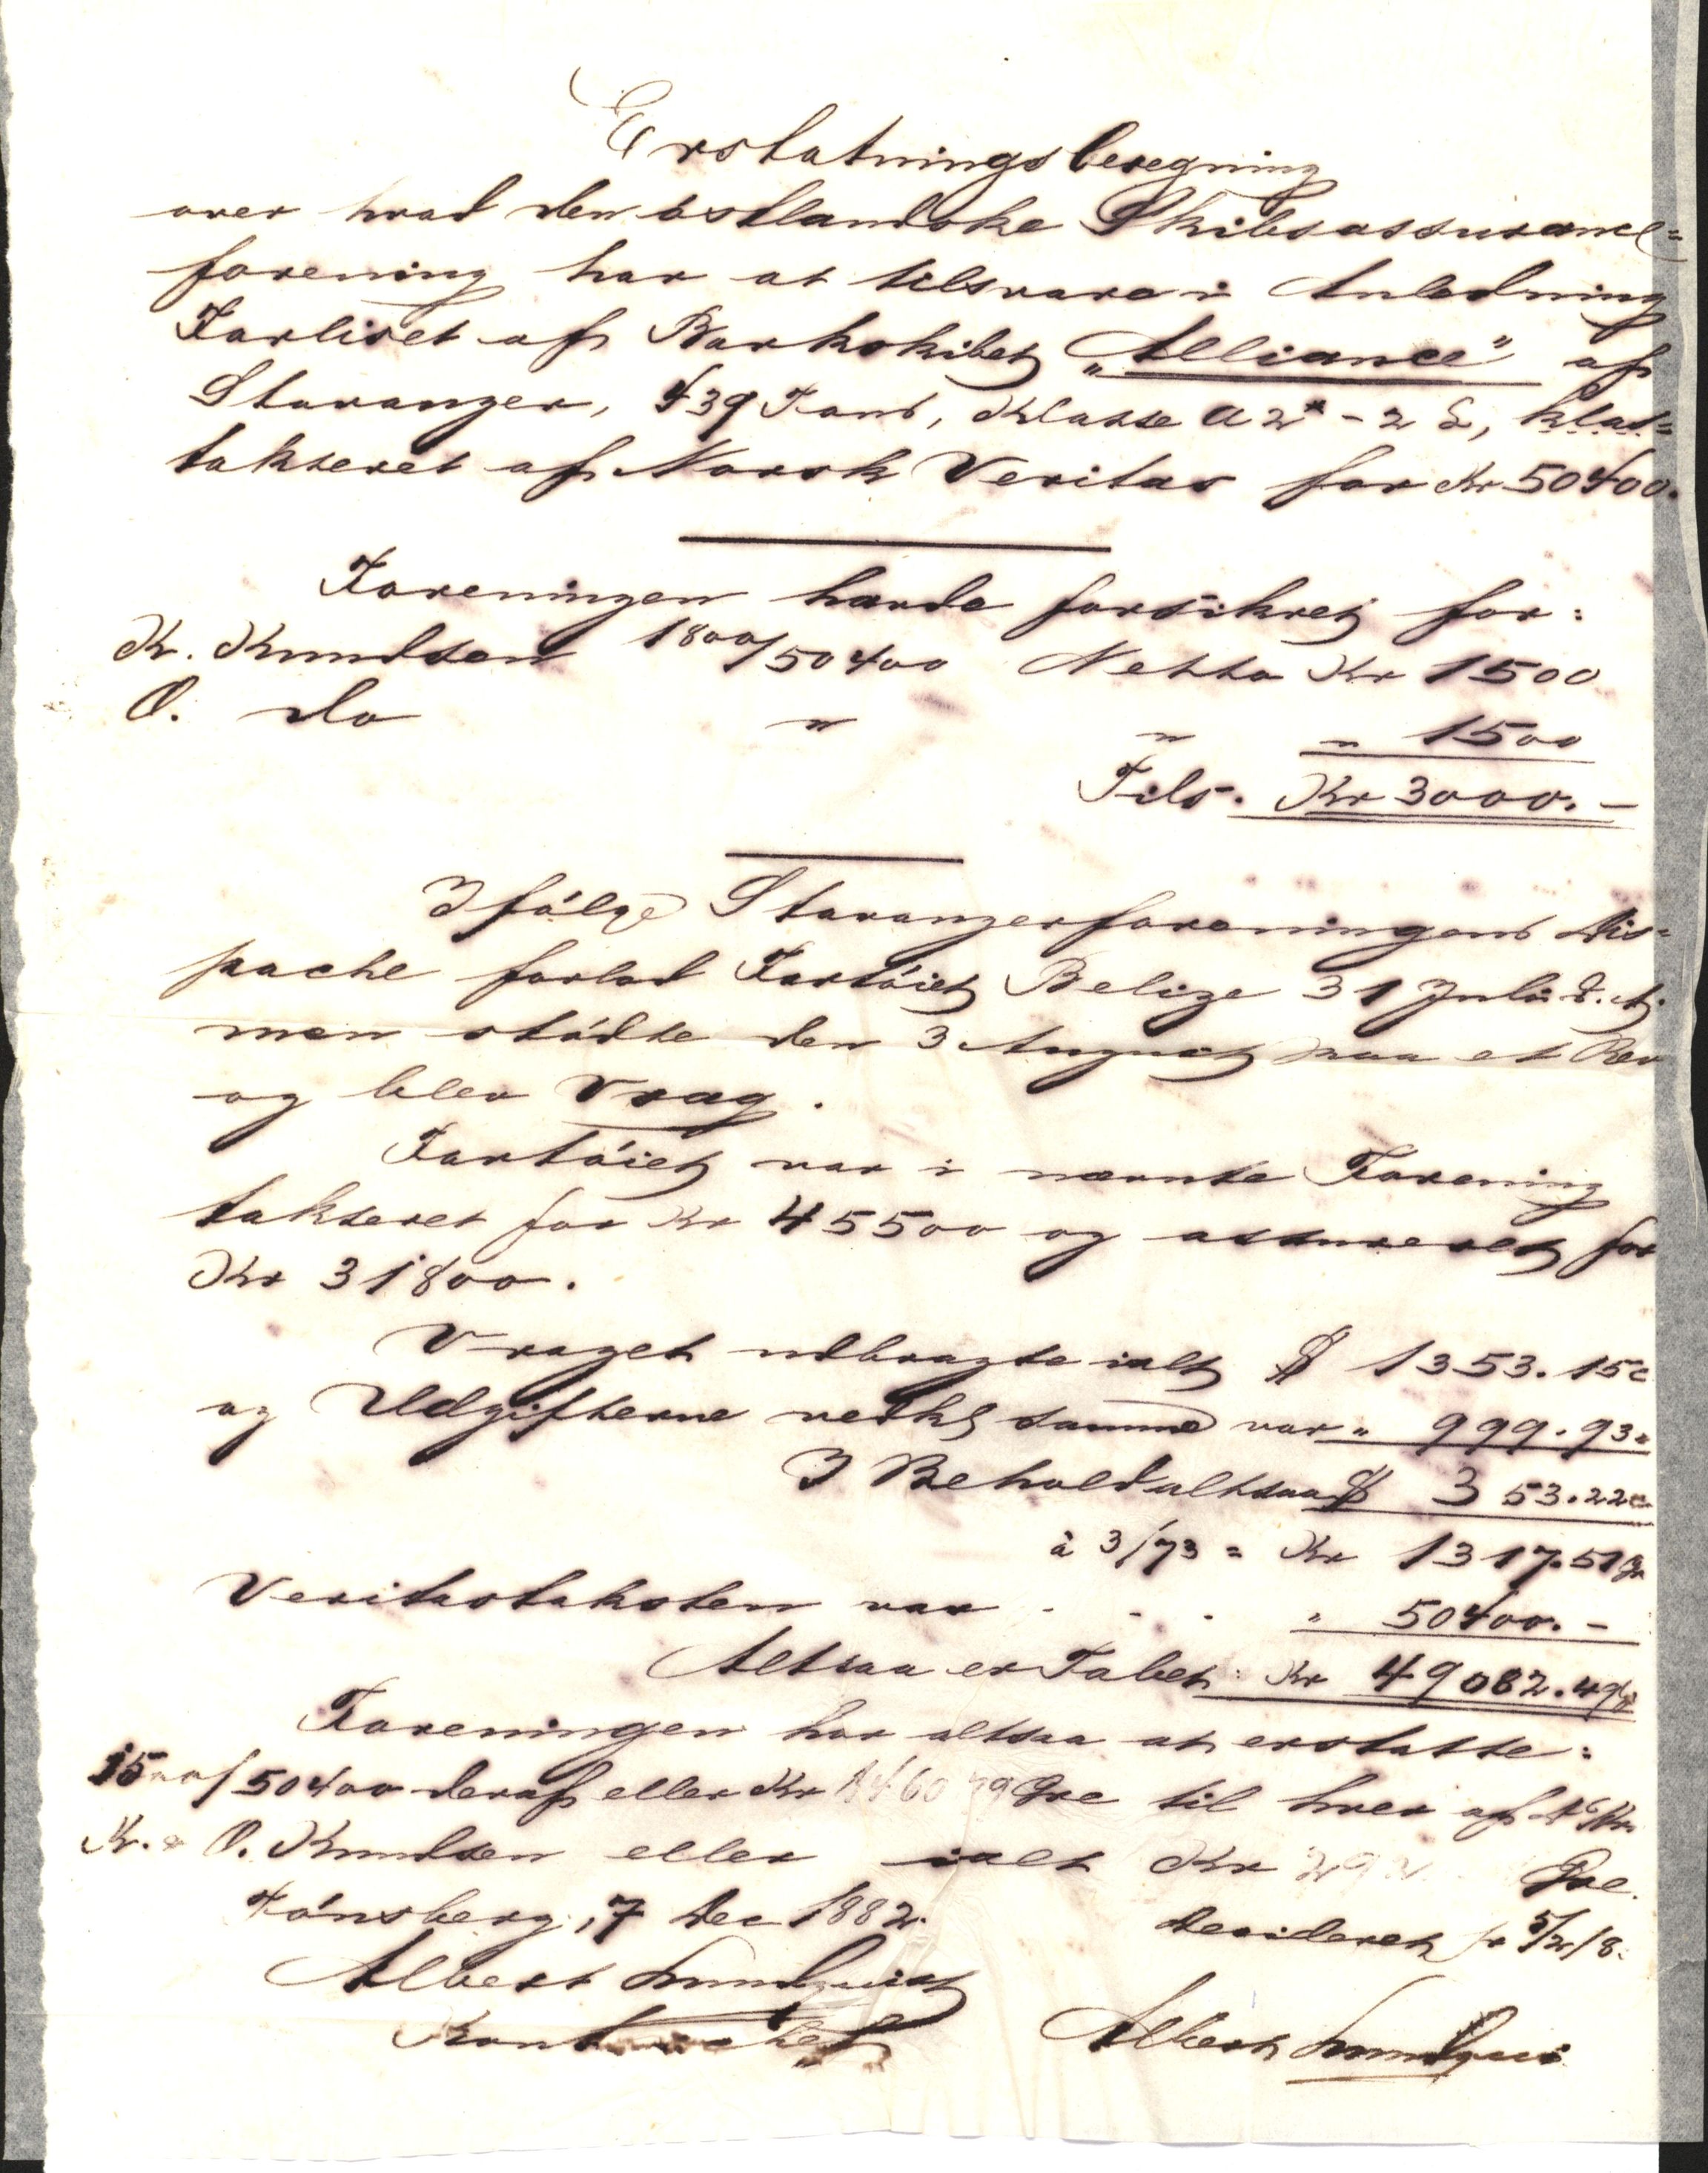 Erstatningsberegning
over hvad den östlandske Skibsassurance=
forening har at tilsvare i Anledning
Forliset af Barkskibet „Alliance" af
Stavanger, 439 Tons, Klasse A 2* - 2 L,
takseret af Norsk Veritas for Kr 50400.
Foreningen havde forsikret for:
K. Knudsen 1800/50400 Netto Kr 1500
O. do " " " 1500
Tils. Kr 3000. -
Ifölge Stavangerforeningens Dis=
pache forlod Fartöiet Belize 31 Juli d. A.
men stödte den 3 August paa et Rev
og blev Vrag.
Fartöiet var i nævnte Forening
takseret for Kr 45500 og assureret for
Kr 31800.
Vraget udbragte ialt $ 1353.15c
og Udgifterne vedk samme var " 999.93 "
I Behold altsaa $ 353.22c
à 3/73 = Kr 1317.51
Veritastaksten var - - - " 50400. -
Altsaa er Tabet: Kr 49082.49
Foreningen har altsaa at erstatte:
1500/50400 deraf eller Kr 1460 79 Øre til hver af
K. & O. Knudsen eller ialt Kr Øre.
Tönsberg, 7 Dec 1882.
Decideret
Albert Lundquist
Albert Lundquis